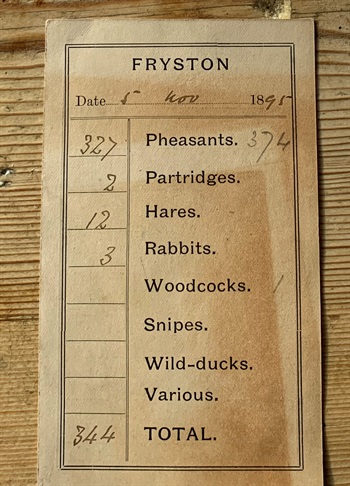 FRYSTON
Date 5 Nov 1895
327 Pheasants. 374
2 Partridges.
12 Hares.
3 Rabbits.
Woodcocks. 1
Snipes.
Wild-ducks.
Various.
344 TOTAL.